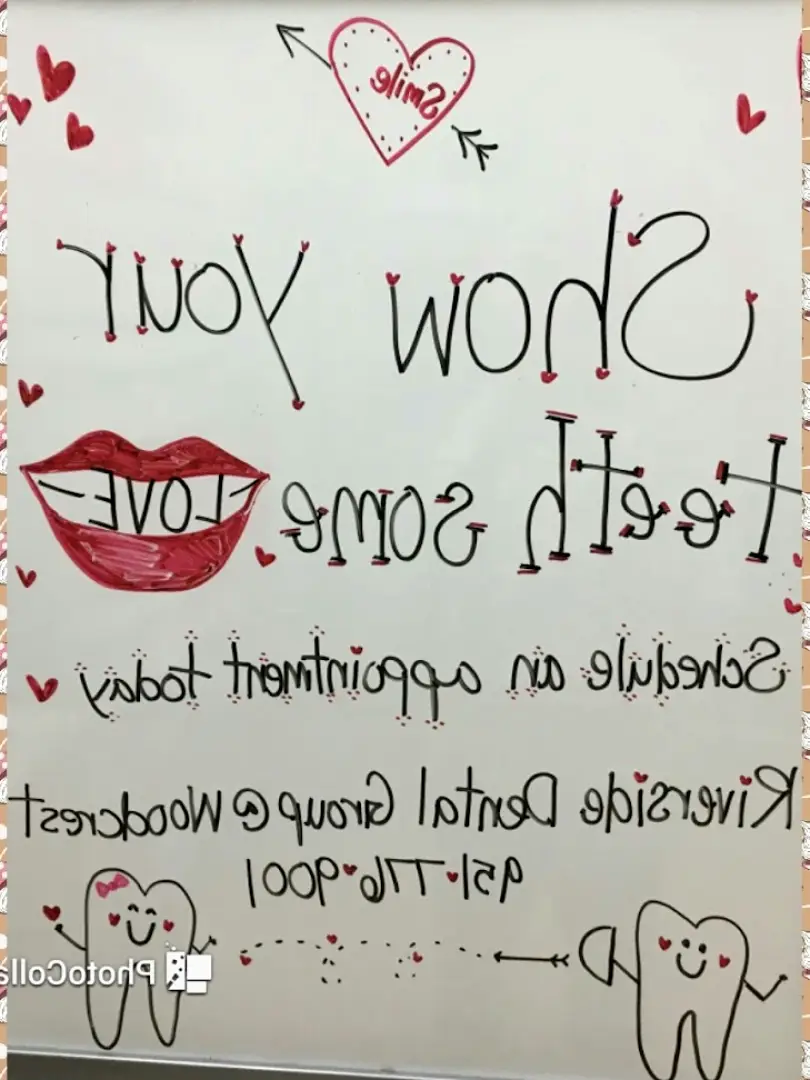 Smile
Show your
Teeth some
LOVE
Schedule an appointment today
Riverside Dental Group @ Woodcrest
951·776·9001
PhotoColla